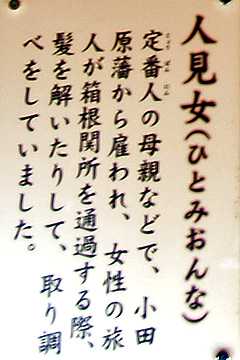 人見女(ひとみおんな)
定番人の母親などで、小田
原藩から雇われ、女性の旅
人が箱根関所を通過する際、
髪を解いたりして、取り調
べをしていました。